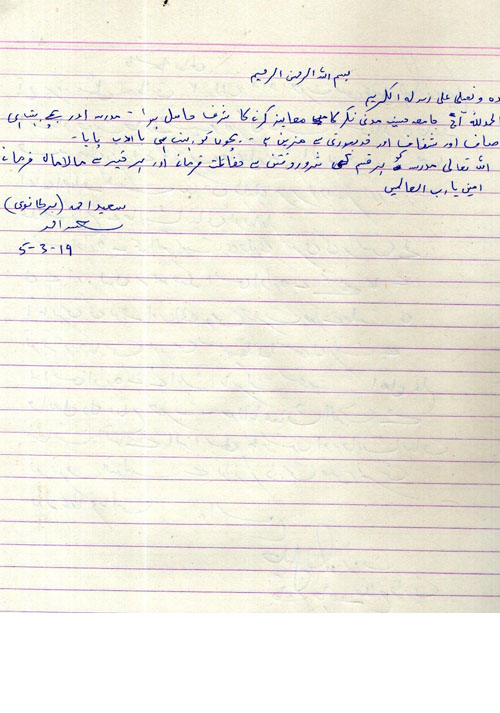 بسم اللہ الرحمن الرحیم
ونصلی علی رسولہ الکریم
الحمدللہ آج جامعہ مدنی نگر کا معاینہ کرنے کا شرف حاصل ہوا - مدرسہ اور بچے بہت ہی
صاف اور شفاف اور خوبصورتی سے مزین ہے - بچوں کو بہت ہی باادب پایا -
اللہ تعالی مدرسہ کو ہر قسم کی شرور وفتن سے حفاظت فرمائے اور ہر خیر سے مالامال فرمائے
امین یا رب العالمین
سعید احمد (برطانوی)
سعید احمد
5-3-19